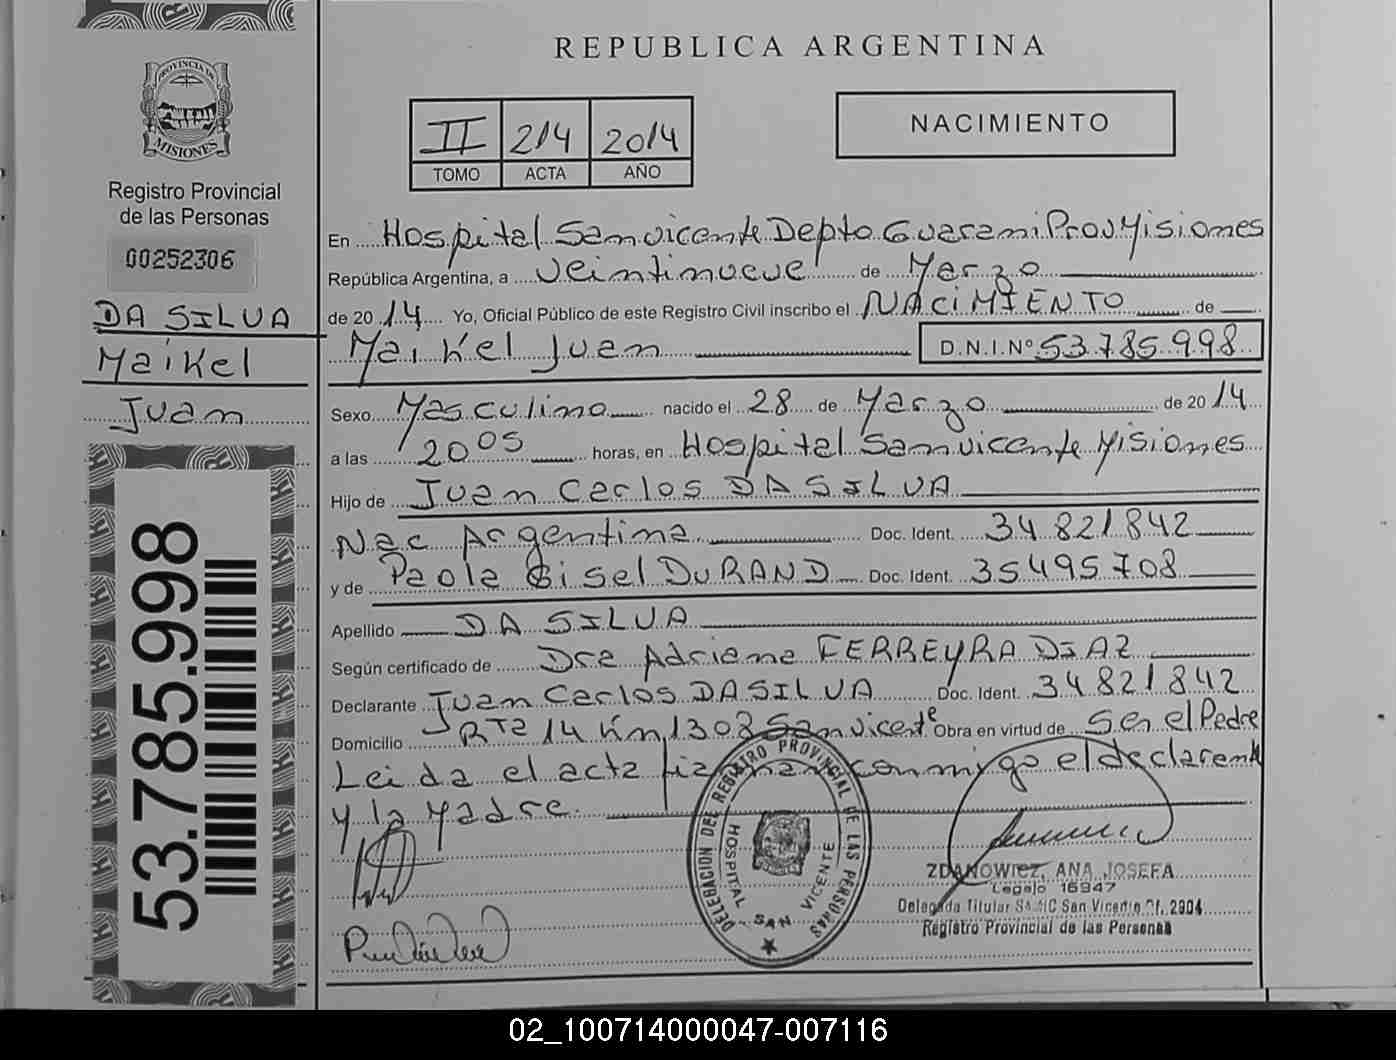 REPUBLICA ARGENTINA
PROVINCIA DE
MISIONES
Registro Provincial
de las Personas
00252306
DA SILVA
Maikel
Juan
53.785.998
II 214 2014
TOMO ACTA AÑO
NACIMIENTO
En Hospital San vicente Depto Guarani Prov Misiones
República Argentina, a veintinueve de Marzo
de 2014 Yo, Oficial Público de este Registro Civil inscribo el NACIMIENTO de
Maikel Juan D.N.I.Nº 53.785.998
Sexo Masculino nacido el 28 de Marzo de 2014
a las 20 05 horas, en Hospital San vicente Misiones
Hijo de Juan Carlos DA SILVA
Nac Argentina Doc. Ident. 34 821 842
y de Paola Gisel DURAND Doc. Ident. 35495708
Apellido DA SILVA
Según certificado de Dra Adriana FERREYRA DIAZ
Declarante Juan Carlos DA SILVA Doc. Ident. 34 821 842
Domicilio RTa 14 Km 1308 San vicente Obra en virtud de Ser el Padre
Leida el acta firman conmigo el declarante
y la Madre.
DELEGACION DEL REGISTRO PROVINCIAL DE LAS PERSONAS
HOSPITAL SAN VICENTE
ZDANOWICZ, ANA JOSEFA
Legajo 16947
Delegada Titular San Vicente Of. 2904
Registro Provincial de las Personas
02_100714000047-007116